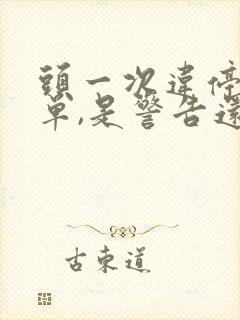 頭一次違停
單,是警告還
古東道